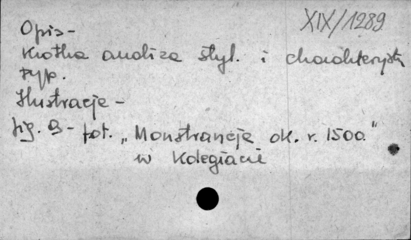 XIX/1289
Opis -
Krótka analiza styl. i charakteryst.
typ.
Ilustracje -
fig. B - fot. „Monstrancja ok. r. 1500"
w Kolegiacie